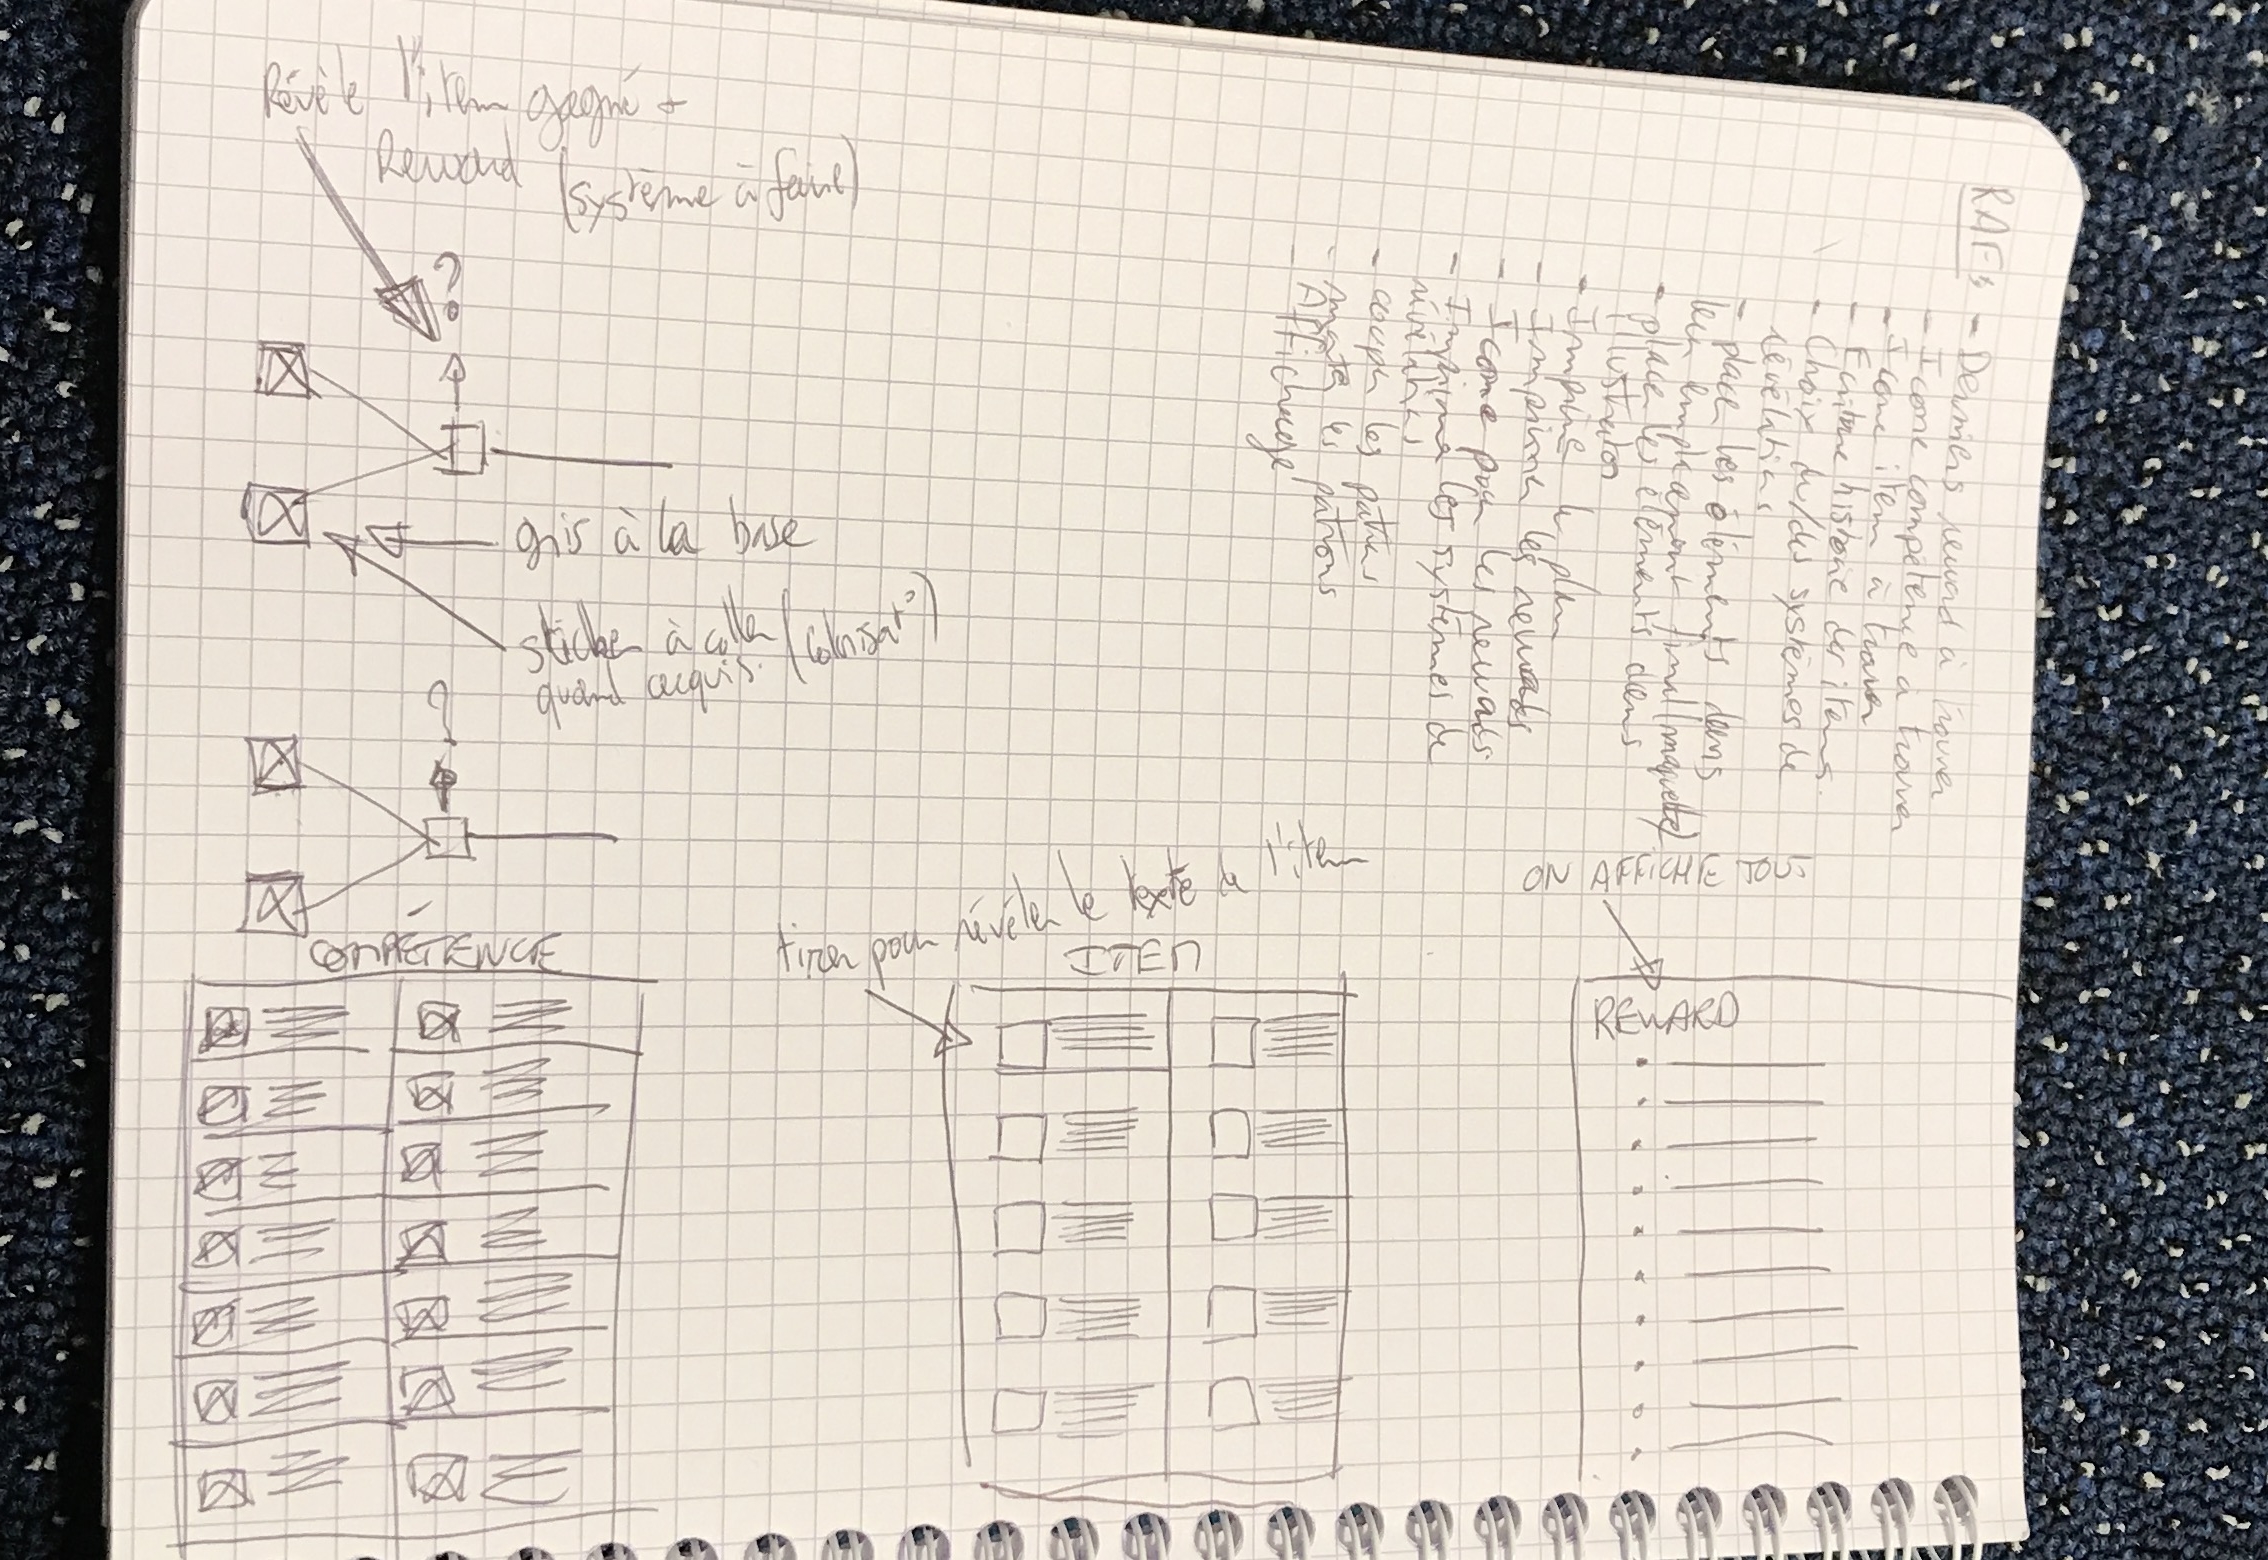 Révèle l'item gagné +
Reward (système à faire)
?
gris à la base
sticker à coller (colorisat°)
quand acquis.
?
RAF :
- Derniers reward à trouver
- Icone compétence à trouver
- Icone item à trouver
- Ecriture histoire des items.
- Choix du/des systèmes de
révélation
- placer les éléments dans
leur emplacement final (maquette)
- placer les éléments dans
illustrator
- Imprimer le plan
- Imprimer les rewards
- Icone pour les rewards
- Imprimer les systèmes de
révélation
- couper les
- les patrons
- Affichage
COMPÉTENCE
tirer pour révéler le texte de l'item
ITEM
ON AFFICHE TOUT
REWARD